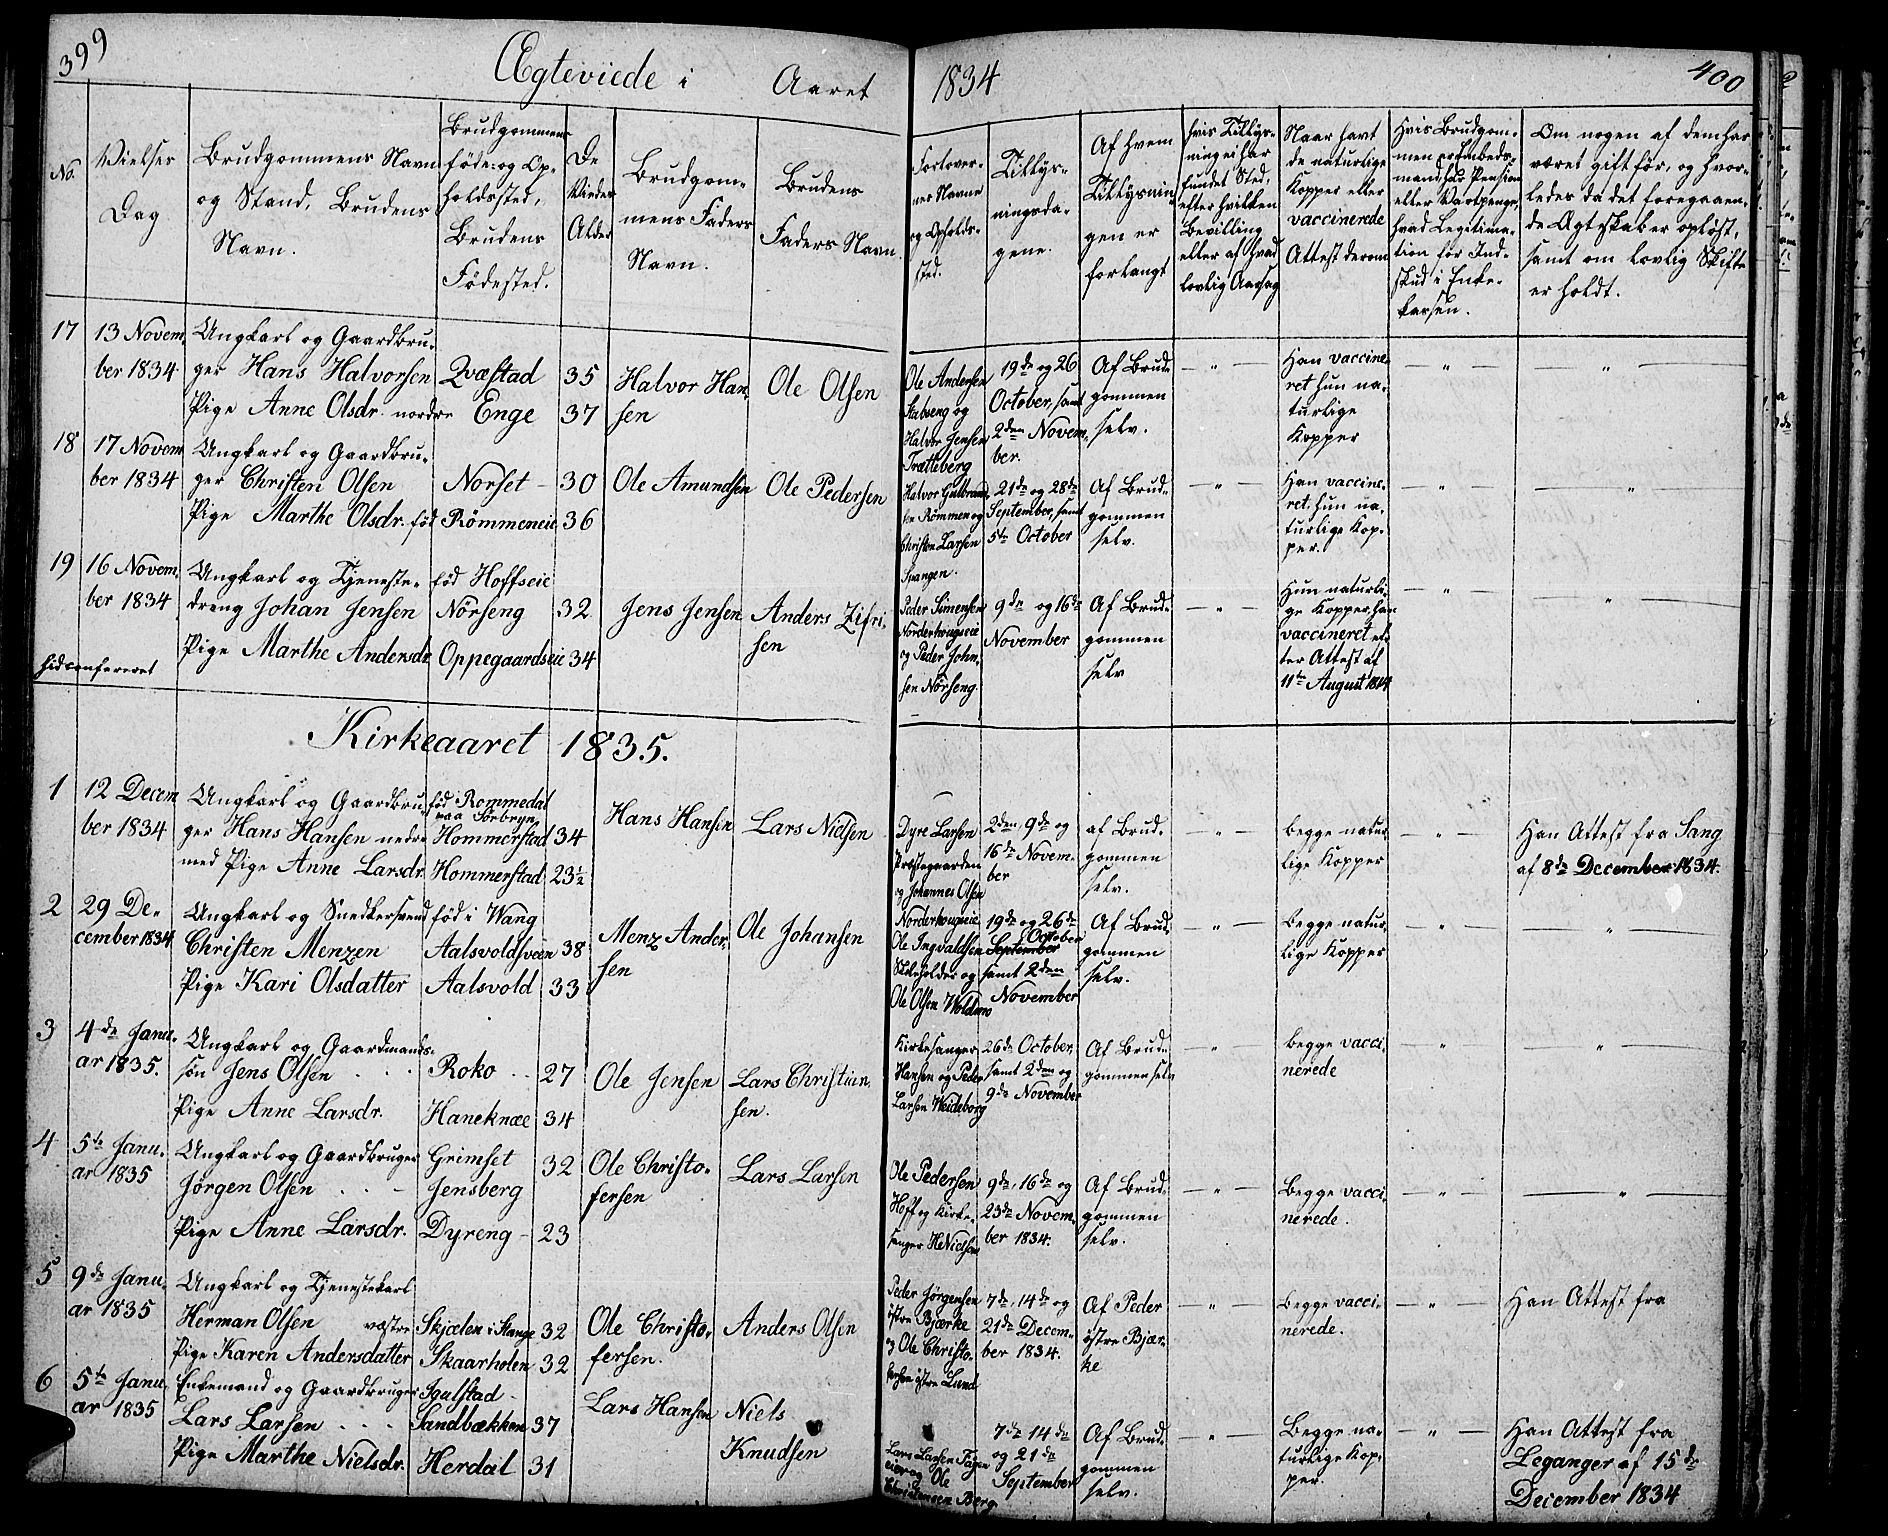 399
Ægteviede i Aaret
1834
400
No.
Vielses
Dag.
Brudgommens Navn
og Stand, Brudens
Navn.
Brudgommens
føde- og Op-
holdssted,
Brudens
Fødested.
De
Viedes
Alder
Brudgom-
mens Faders
Navn.
Brudens
Faders Navn.
Forlover-
nes Navne
og Opholds-
sted.
Tillys-
ningsda-
gene.
Af hvem
Tillysnin-
gen er
forlangt
Hvis Tillys-
ning ei har
fundet Sted,
efter hvilken
Bevilling
eller af hvad
lovlig Aarsag
Naar havt
de naturlige
Kopper eller
vaccinerede
Attest derom
Hvis Brudgom-
men er Embeds-
mand, har Pension
eller Vartpenge,
hvad Legitima-
tion for Ind-
skud i Enke-
kassen.
Om nogen af dem har
været gift før, og hvor-
ledes da det foregaaen-
de Ægteskab er opløst,
samt om lovlig Skifte
er holdt.
17
13 Novem-
ber 1834
Ungkarl og Gaardbru-
ger Hans Halvorsen
Pige Anne Olsdr. nordre
Qvæstad
Enge
35
37
Halvor Han-
sen
Ole Olsen
Ole Andersen
Stubseng og
Halvor Jensen
Tratteberg
19de og 26
October, samt
2den Novem-
ber.
Af Brud-
gommen
selv.
Han vaccine-
ret hun na-
turlige
Kopper
18
17 Novem
ber 1834
Ungkarl og Gaardbru-
ger Christen Olsen
Pige Marthe Olsdr. fød
Norset
Römmeneie
30
36
Ole Amundsen
Ole Pedersen
Halvor Gulbrand-
sen Rømmen og
Christen Larsen
Spangen.
21de og 28de
September, samt
5te October
Af Brud-
gommen
selv.
Han vaccine-
ret, hun na-
turlige Kop-
per.
19
16 Novem-
ber 1834
Ungkarl og Tjeneste-
dreng Johan Jensen
Pige Marthe Andersdr.
fød Hoffseie
Nörseng
Oppegaardseie
32
34
Jens Jensen
Anders Zifri-
sen
Peder Simensen
Norderhougseie
og Peder John-
sen Nörseng.
9de og 16de
November
Af Brud-
gommen
selv
Hun naturli-
ge Kopper, han
vaccineret ef-
ter Attest af
11te August 1814
hidconfereret
Kirkeaaret 1835.
1
12 Decem
ber 1834
Ungkarl og Gaardbru-
ger Hans Hansen nedre
med Pige Anne Larsdr.
fød Rommedal
paa Sörbryn
Hommerstad
Hommerstad
34
23½
Hans Hansen
Lars Nielsen
Dyre Larsen
Præstegaarden
og Johannes Olsen
Norderhougseie
2den, 9de og
16de Novem-
ber
af Brud-
gommen
selv.
begge natur-
lige Kopper
Han Attest fra Vang
af 8de December 1834.
2
29 De-
cember 1834
Ungkarl og Snedkersvend
Christen Menzen
Pige Kari Olsdatter
fød i Wang
Aalsvoldsveen
Aalsvold
38
33
Menz Ander-
sen
Ole Johansen
Ole Ingvaldsen
Skoleholder og
Ole Olsen Woldmo
19de og 26de
October
September
samt 2den
November
Af Brud-
gommen
selv.
begge natur-
lige Kopper
3
4de Janu-
ar 1835.
Ungkarl og Gaardmands-
søn Jens Olsen
Pige Anne Larsdr.
Roko
Haneknæe
27
34
Ole Jensen
Lars Christian-
sen.
Kirkesanger
Hansen og Peder
Larsen Weideborg
26de October,
samt 2den og
9de November
Af Brud-
gommen selv
begge vacci-
nerede
4
5te Janu-
ar 1835
Ungkarl og Gaardbruger
Jørgen Olsen
Pige Anne Larsdr.
Grimset
Jensberg
Dyreng
32
23
Ole Christo-
fersen
Lars Larsen
Ole Pedersen
Hoff og Kirke-
sanger HNielsen
9de, 16de og
23de Novem-
ber 1834.
Af Brud-
gommen
selv.
begge vacci-
nerede.
5
9de Janu-
ar 1835
Ungkarl og Tjenestekarl
Herman Olsen væstre
Pige Karen Andersdatter
Skjælen i Stange
Skaarholen
32
32
Ole Christo-
fersen.
Anders Olsen
Peder Jørgensen
østre Bjærke
og Ole Christo-
fersen østre Lund
7de, 14de og
21de Decem-
ber 1834.
Af Peder
østre Bjær-
ke
begge vacci-
nerede.
Han Attest fra
6
5te Janu-
ar 1835
Enkemand og Gaardbruger
Lars Larsen
Pige Marthe Nielsdr.
Igulstad
Sandbækken
Herdal
37
31
Lars Hansen
Niels
Knudsen
Lars Larsen
og Ole
Christensen Berg
7de 14de
og 21de
September
Af Brud-
gommen
selv.
Begge na-
turlige Kop-
per.
Han Attest fra
Leganger af 15de
December 1834